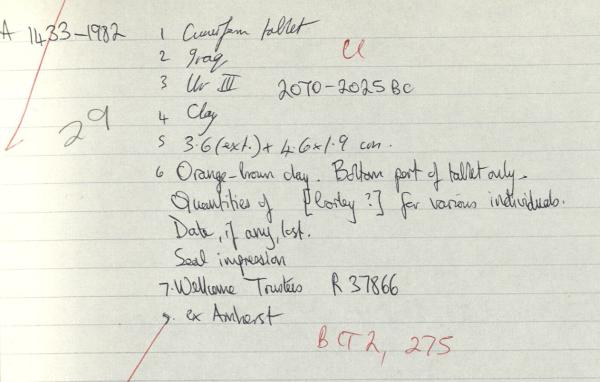 A 1433-1982 1 Cuneiform tablet
2 Iraq
3 Ur III 2070-2025 BC
4 Clay
29
5 3.6 (ext.) x 4.6 x 1.9 cm.
6 Orange-brown clay. Bottom part of tablet only.
Quantities of [barley ?] for various individuals.
Date, if any, lost.
Seal impression
7. Wellcome Trustees R 37866
9. ex Amherst
BCT 2, 275